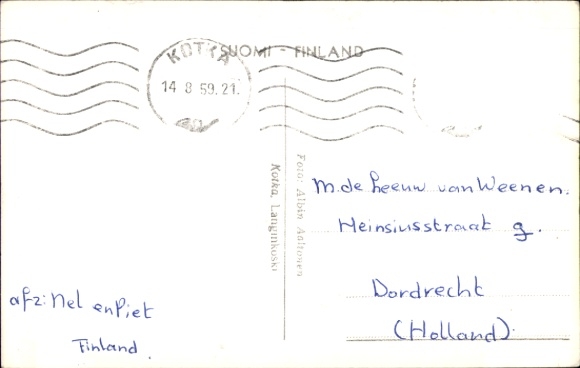 SUOMI - FINLAND
KOTKA
14 8 59.21.
Foto: Albin Aaltonen
Kotka, Langinkoski
M. de Leeuw van Weenen.
Heinsiusstraat 9.
Dordrecht
(Holland)
afz: Nel en Piet
Finland.